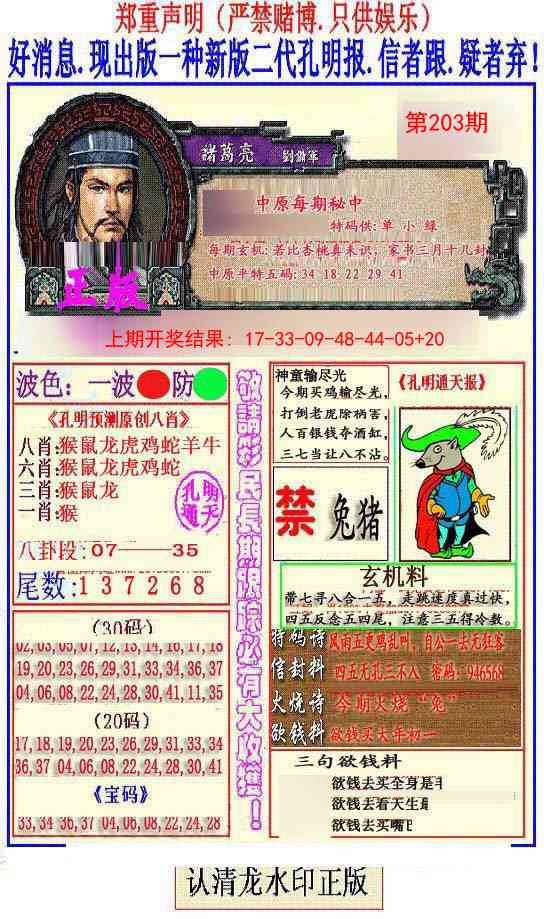 郑重声明（严禁赌博.只供娱乐）
好消息.现出版一种新版二代孔明报.信者跟.疑者弃！
第203期
諸葛亮 劉備軍
中原每期秘中
特码供:单 小 綠
每期玄机:若比杏桃真未识，家书三月十几封
中原平特五码:34 18 22 29 41
正版
上期开奖结果: 17-33-09-48-44-05+20
波色：一波 防
《孔明预测原创八肖》
八肖:猴鼠龙虎鸡蛇羊牛
六肖:猴鼠龙虎鸡蛇
三肖:猴鼠龙
一肖:猴
孔明
通天
八卦段:07——35
尾数:137268
(30码)
02,03,05,07,12,13,14,16,17,18
19,20,23,26,29,31,33,34,36,37
04,06,08,22,24,28,30,41,11,35
(20码)
17,18,19,20,23,26,29,31,33,34
36,37 04,06,08,22,24,28,30,41
《宝码》
33,34 36,37 04,06,08,22,24,28
敬請彩民長期跟踪必有大收獲！
神童输尽光
今期买鸡输尽光，
打倒老虎除祸害，
人百银钱夺酒缸，
三七当让八不沾。
《孔明通天报》
禁
兔猪
玄机料
带七寻八合一五，走跳速度真过快，
四五反念五四尾，注意三五得冷数。
特码诗 风雨五更鸡乱叫，自公一去无狂客
信封料 四五无孔三不入 密码：946568
火烧诗 今期火烧“兔”
欲钱料 欲钱买大年初一
三句欲钱料
欲钱去买全身是
欲钱去看天生
欲钱去买嘴
认清龙水印正版